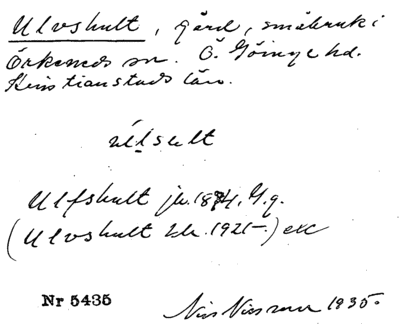 Ulvshult, gård, småbruk i
Örkeneds sn. Ö. Göinge hd.
Kristianstads län.
úlsult
Ulfshult jb. 1874, G.g.
(Ulvshult tlk. 1921-) exc
Nr 5435 Nils Nilsson 1935.